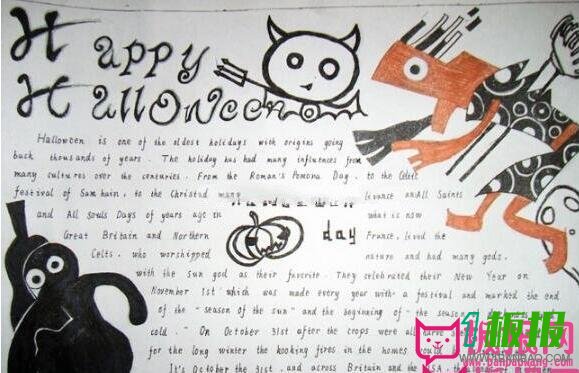 Happy
Halloween
Halloween is one of the oldest holidays with origins going
back thousands of years. The holiday has had many influences from
many cultures over the centuries. From the Roman's Pomona Day, to the Celtic
festival of Samhain, to the Christud many livance onAll Saints
and All Souls Days of years ago in what is now
day
Great Britain and Northern France, lived the
Celts. who worshipped nature and had many gods.
with the sun god as their favorite. They celebrated their New Year on
November 1st which was made every year with a festival and marked the end
of the "season of the sun" and the beginning of "the season
cold." On October 31st after the crops were all
for the long winter the kooking fires in the homes would
It's October 31st, and across Britain and the USA, the
板报
www.banbaowang.com